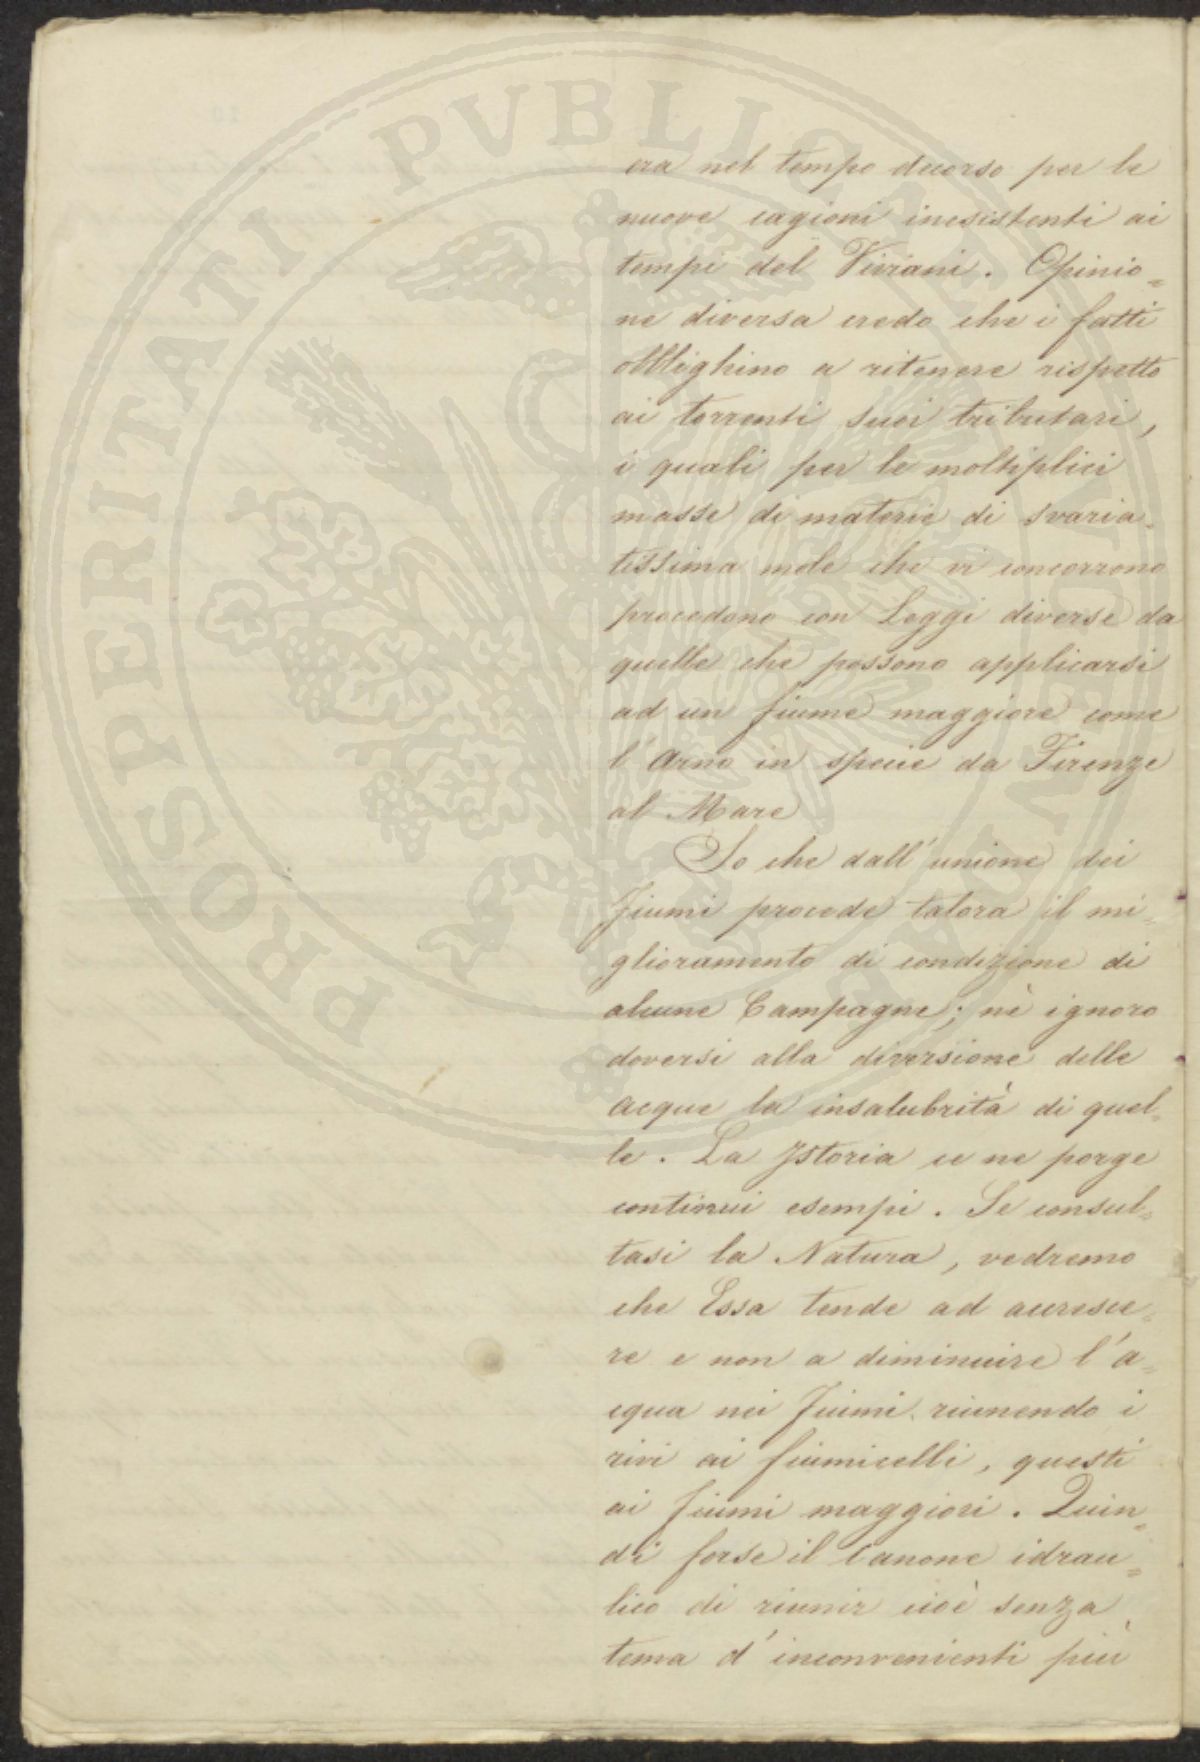 era nel tempo decorso per le
nuove cagioni inesistenti ai
tempi del Viviani. Opinio=
ne diversa credo che i fatti
obblighino a ritenere rispetto
ai torrenti suoi tributari,
i quali per le moltiplici
masse di materie di svaria=
tissima mole che vi concorrono
procedono con Leggi diverse da
quelle che possono applicarsi
ad un fiume maggiore come
l'Arno in specie da Firenze
al Mare
So che dall'unione dei
fiumi procede talora il mi=
glioramento di condizione di
alcune Campagne; nè ignoro
doversi alla diversione delle
acque la insalubrità di quel=
le. La Istoria ce ne porge
continui esempi. Se consul=
tasi la Natura, vedremo
che Essa tende ad accresce=
re e non a diminuire l'a=
cqua nei Fiumi riunendo i
rivi ai fiumicelli, questi
ai fiumi maggiori. Quin=
di forse il Canone idrau=
lico di riunir cioè senza
tema d'inconvenienti più
PROSPERITATI PVBLICAE